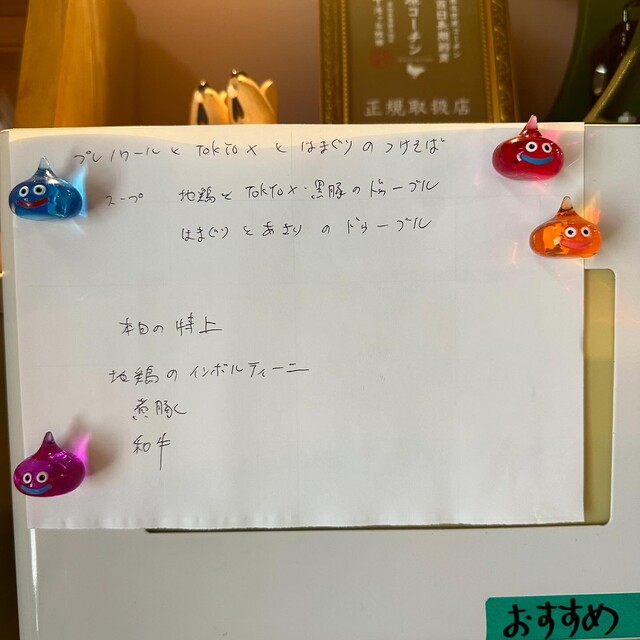 コーチン
正規取扱店
プレノワールと TOKYO X と はまぐり の つけそば
スープ 地鶏と TOKYO X・黒豚の ドゥーブル
はまぐり と あさり の ドゥーブル
本日の 特上
地鶏の インボルティーニ
煮豚
和牛
おすすめ